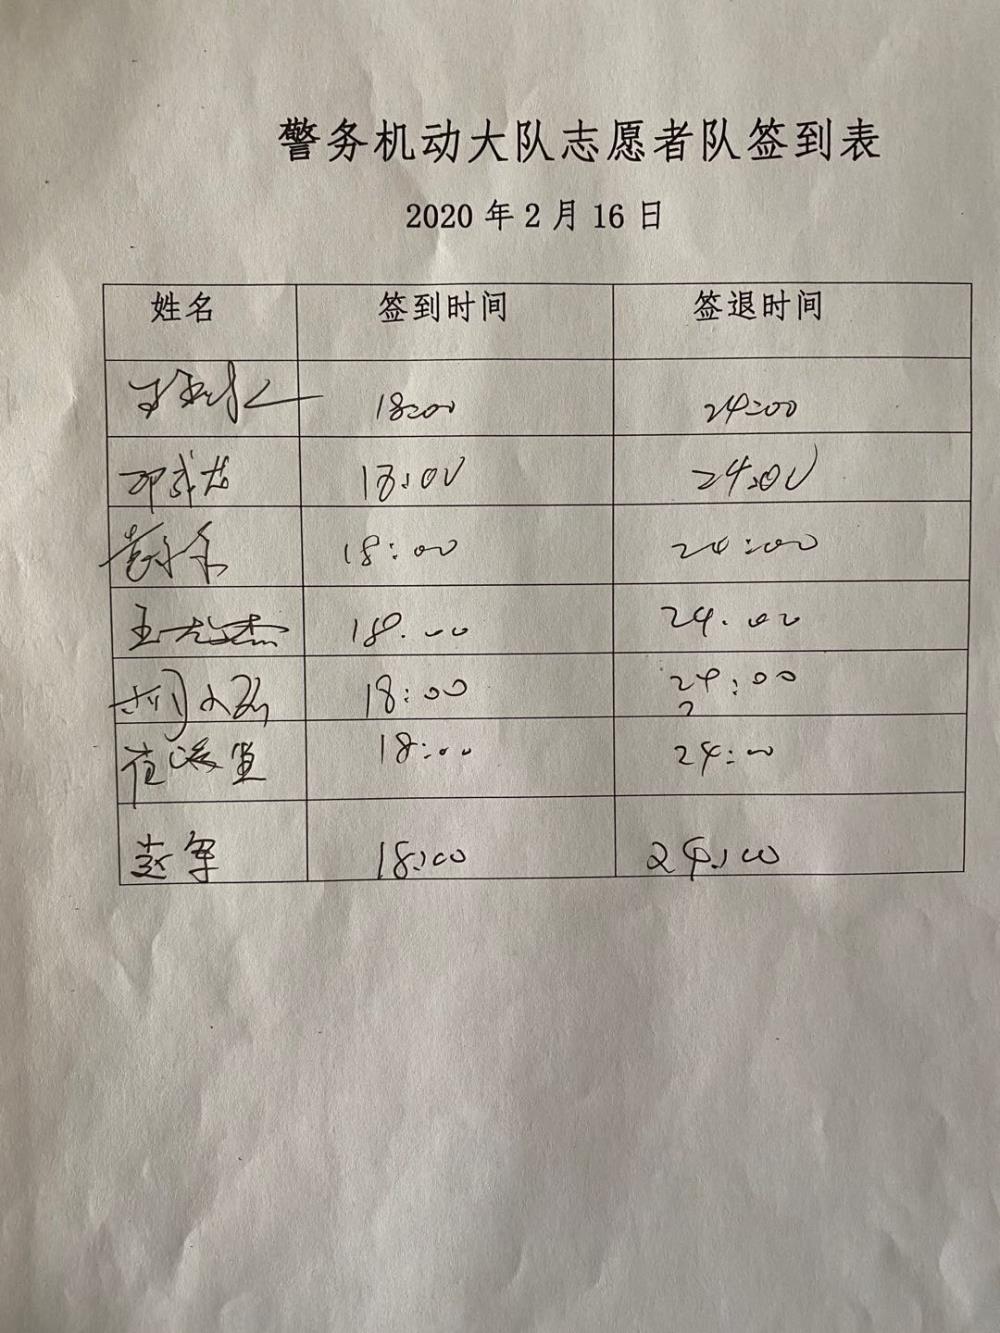 警务机动大队志愿者队签到表
2020 年 2 月 16 日
姓名 签到时间 签退时间
18:00 24:00
18:00 24:00
18:00 24:00
王 杰 18:00 24:00
刘 18:00 24:00
18:00 24:00
赵军 18:00 24:00